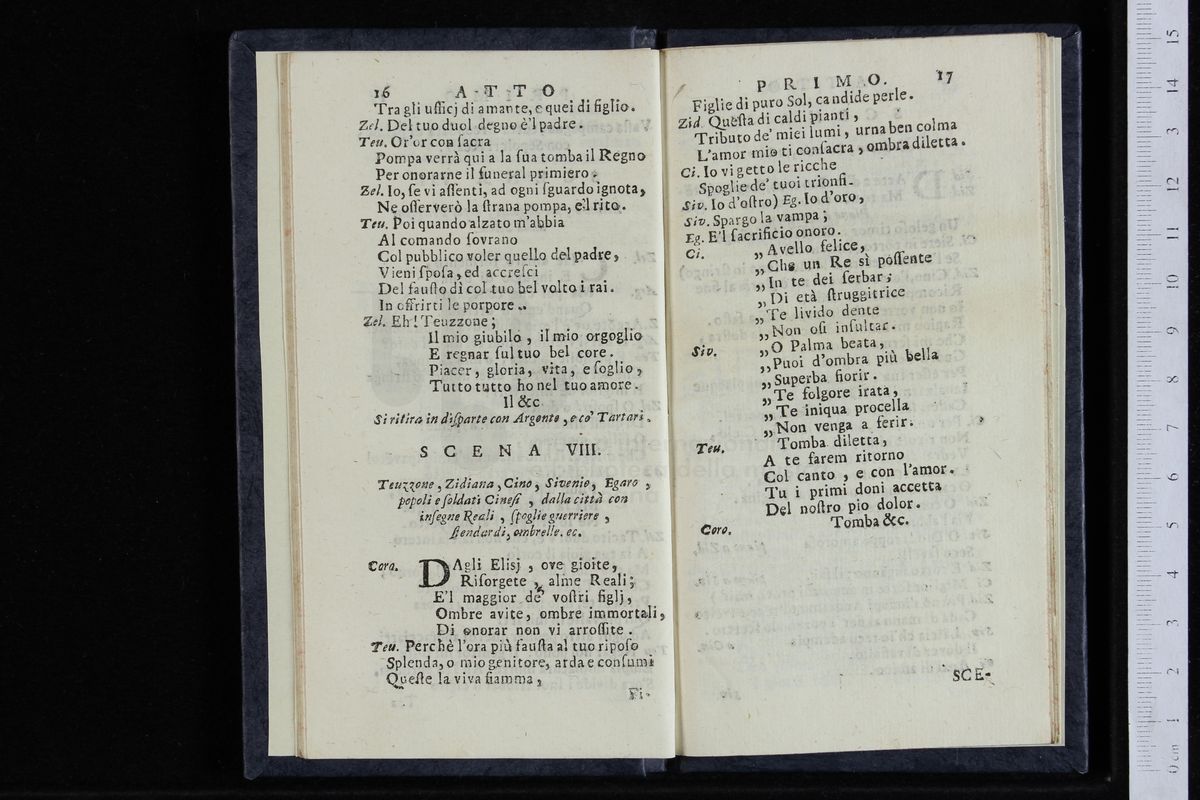 16 ATTO
Tra gli ufficj di amante, e quei di figlio.
Zel. Del tuo duol degno è'l padre.
Teu. Or'or con sacra
Pompa verrà qui a la sua tomba il Regno
Per onorarne il funeral primiero.
Zel. Io, se vi assenti, ad ogni sguardo ignota,
Ne osserverò la strana pompa, e'l rito.
Teu. Poi quando alzato m'abbia
Al comando sovrano
Col pubblico voler quello del padre,
Vieni sposa, ed accresci
Del fausto dì col tuo bel volto i rai.
In offrirti le porpore..
Zel. Eh! Teuzzone;
Il mio giubilo, il mio orgoglio
E regnar sul tuo bel core.
Piacer, gloria, vita, e soglio,
Tutto tutto ho nel tuo amore.
Il &c.
Si ritira in disparte con Argente, e co' Tartari.
SCENA VIII.
Teuzzone, Zidiana, Cino, Sivenio, Egaro,
popoli e soldati Cinesi, dalla città con
insegne Reali, spoglie guerriere,
stendardi, ombrelle. ec.
Coro. DAgli Elisj, ove gioite,
Risorgete, alme Reali;
E'l maggior de' vostri figlj,
Ombre avite, ombre immortali,
Di onorar non vi arrossite.
Teu. Perchè l'ora più fausta al tuo riposo
Splenda, o mio genitore, arda e consumi
Queste la viva fiamma,
Fi-
PRIMO. 17
Figlie di puro Sol, candide perle.
Zid. Questa di caldi pianti,
Tributo de' miei lumi, urna ben colma
L'amor mio ti consacra, ombra diletta.
Ci. Io vi getto le ricche
Spoglie de' tuoi trionfi.
Siv. Io d'ostro) Eg. Io d'oro,
Siv. Spargo la vampa;
Eg. E'l sacrificio onoro.
Ci. „Avello felice,
„Che un Re sì possente
„In te dei serbar;
„Di età struggitrice
„Te livido dente
„Non osi insultar.
Siv. „O Palma beata,
„Puoi d'ombra più bella
„Superba fiorir.
„Te folgore irata,
„Te iniqua procella
„Non venga a ferir.
Teu. Tomba diletta,
A te farem ritorno
Col canto, e con l'amor.
Tu i primi doni accetta
Del nostro pio dolor.
Coro. Tomba &c.
SCE-